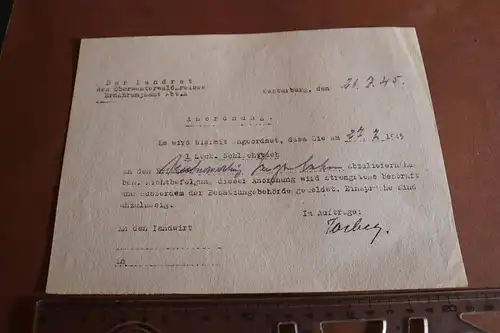 Der Landrat
des Oberwesterwaldkreises
Ernährungsamt Abt. A
Westerburg, den 26.7.45.
Anordnung.
Es wird hiermit angeordnet, dass Sie am 27. 7. 1945
1 Stck. Schlachtvieh
an den abzuliefern ha-
ben. Nichtbefolgung dieser Anordnung wird strengstens bestraft
und ausserdem der Besatzungsbehörde gemeldet. Einsprüche sind
unzulässig.
Im Auftrage:
An den Landwirt
in